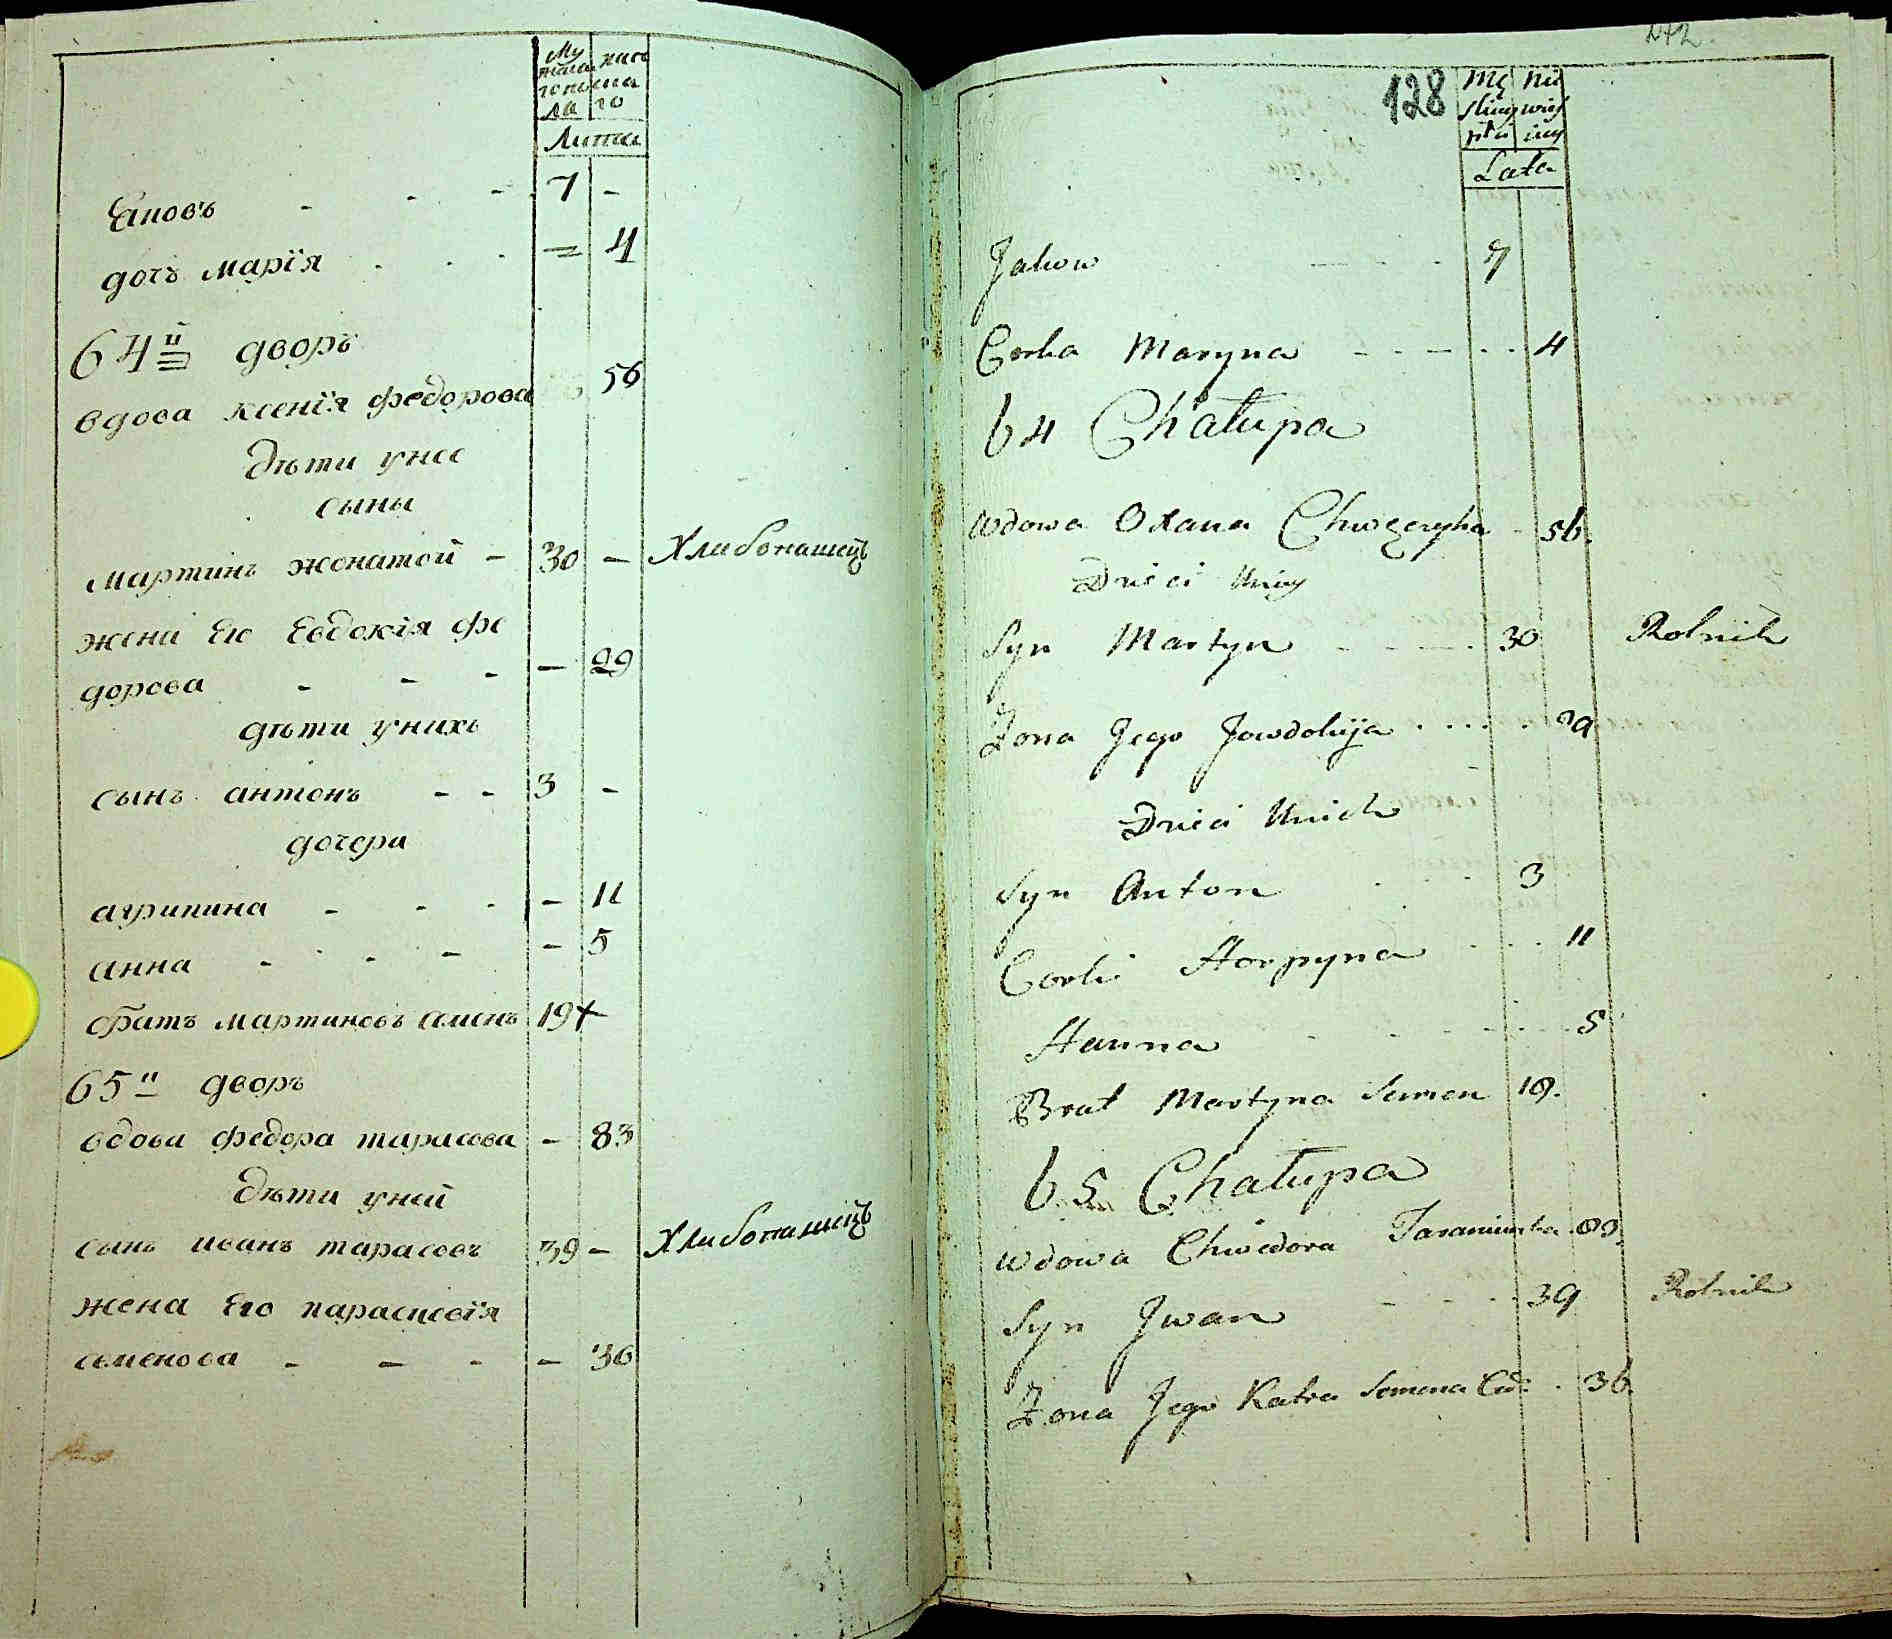 Му
жеска
го по
ла
женс
ка
го
Лита
Єаковъ - - - 7 -
дочъ марїя . . . = 4
64й дворъ
вдова ксенїя федорова 56
дѣти унее
сыны
мартинъ жонатой - 30 - Хлибопашецъ
жена Его Евдокїя фе
дорова - - - - 29
дѣти унихъ
сынъ антонъ - - 3 -
дочери
агрипина - - - - 11
анна - - - - - 5
братъ мартиновъ семенъ 19 +
65й дворъ
вдова федора тарасова - 83
дѣти уней
сынъ иванъ тарасовъ 39 - Хлибопашецъ
жена Его параскевїя
семенова - - - - 36
242.
128
Mę
skiey
płci
Nie
wieś
ciey
Lata
Jakow - - - 7
Corka Maryna - - - - - 4
64 Chałupa
Wdowa Oxana Chwederycha - 56.
Dzieci Uniey
Syn Martyn - - - - 30 Rolnik
Żona Jego Jewdokija . . . . . 29
Dzieci Unich
Syn Anton . . 3
Corki Horpyna - - - . 11
Hanna - - - - - - 5
Brat Martyna Semen 19.
65 Chałupa
Wdowa Chwedora 83.
Syn Jwan - - - - 39 Rolnik
Żona Jego Katra Semena Cór: . 36.